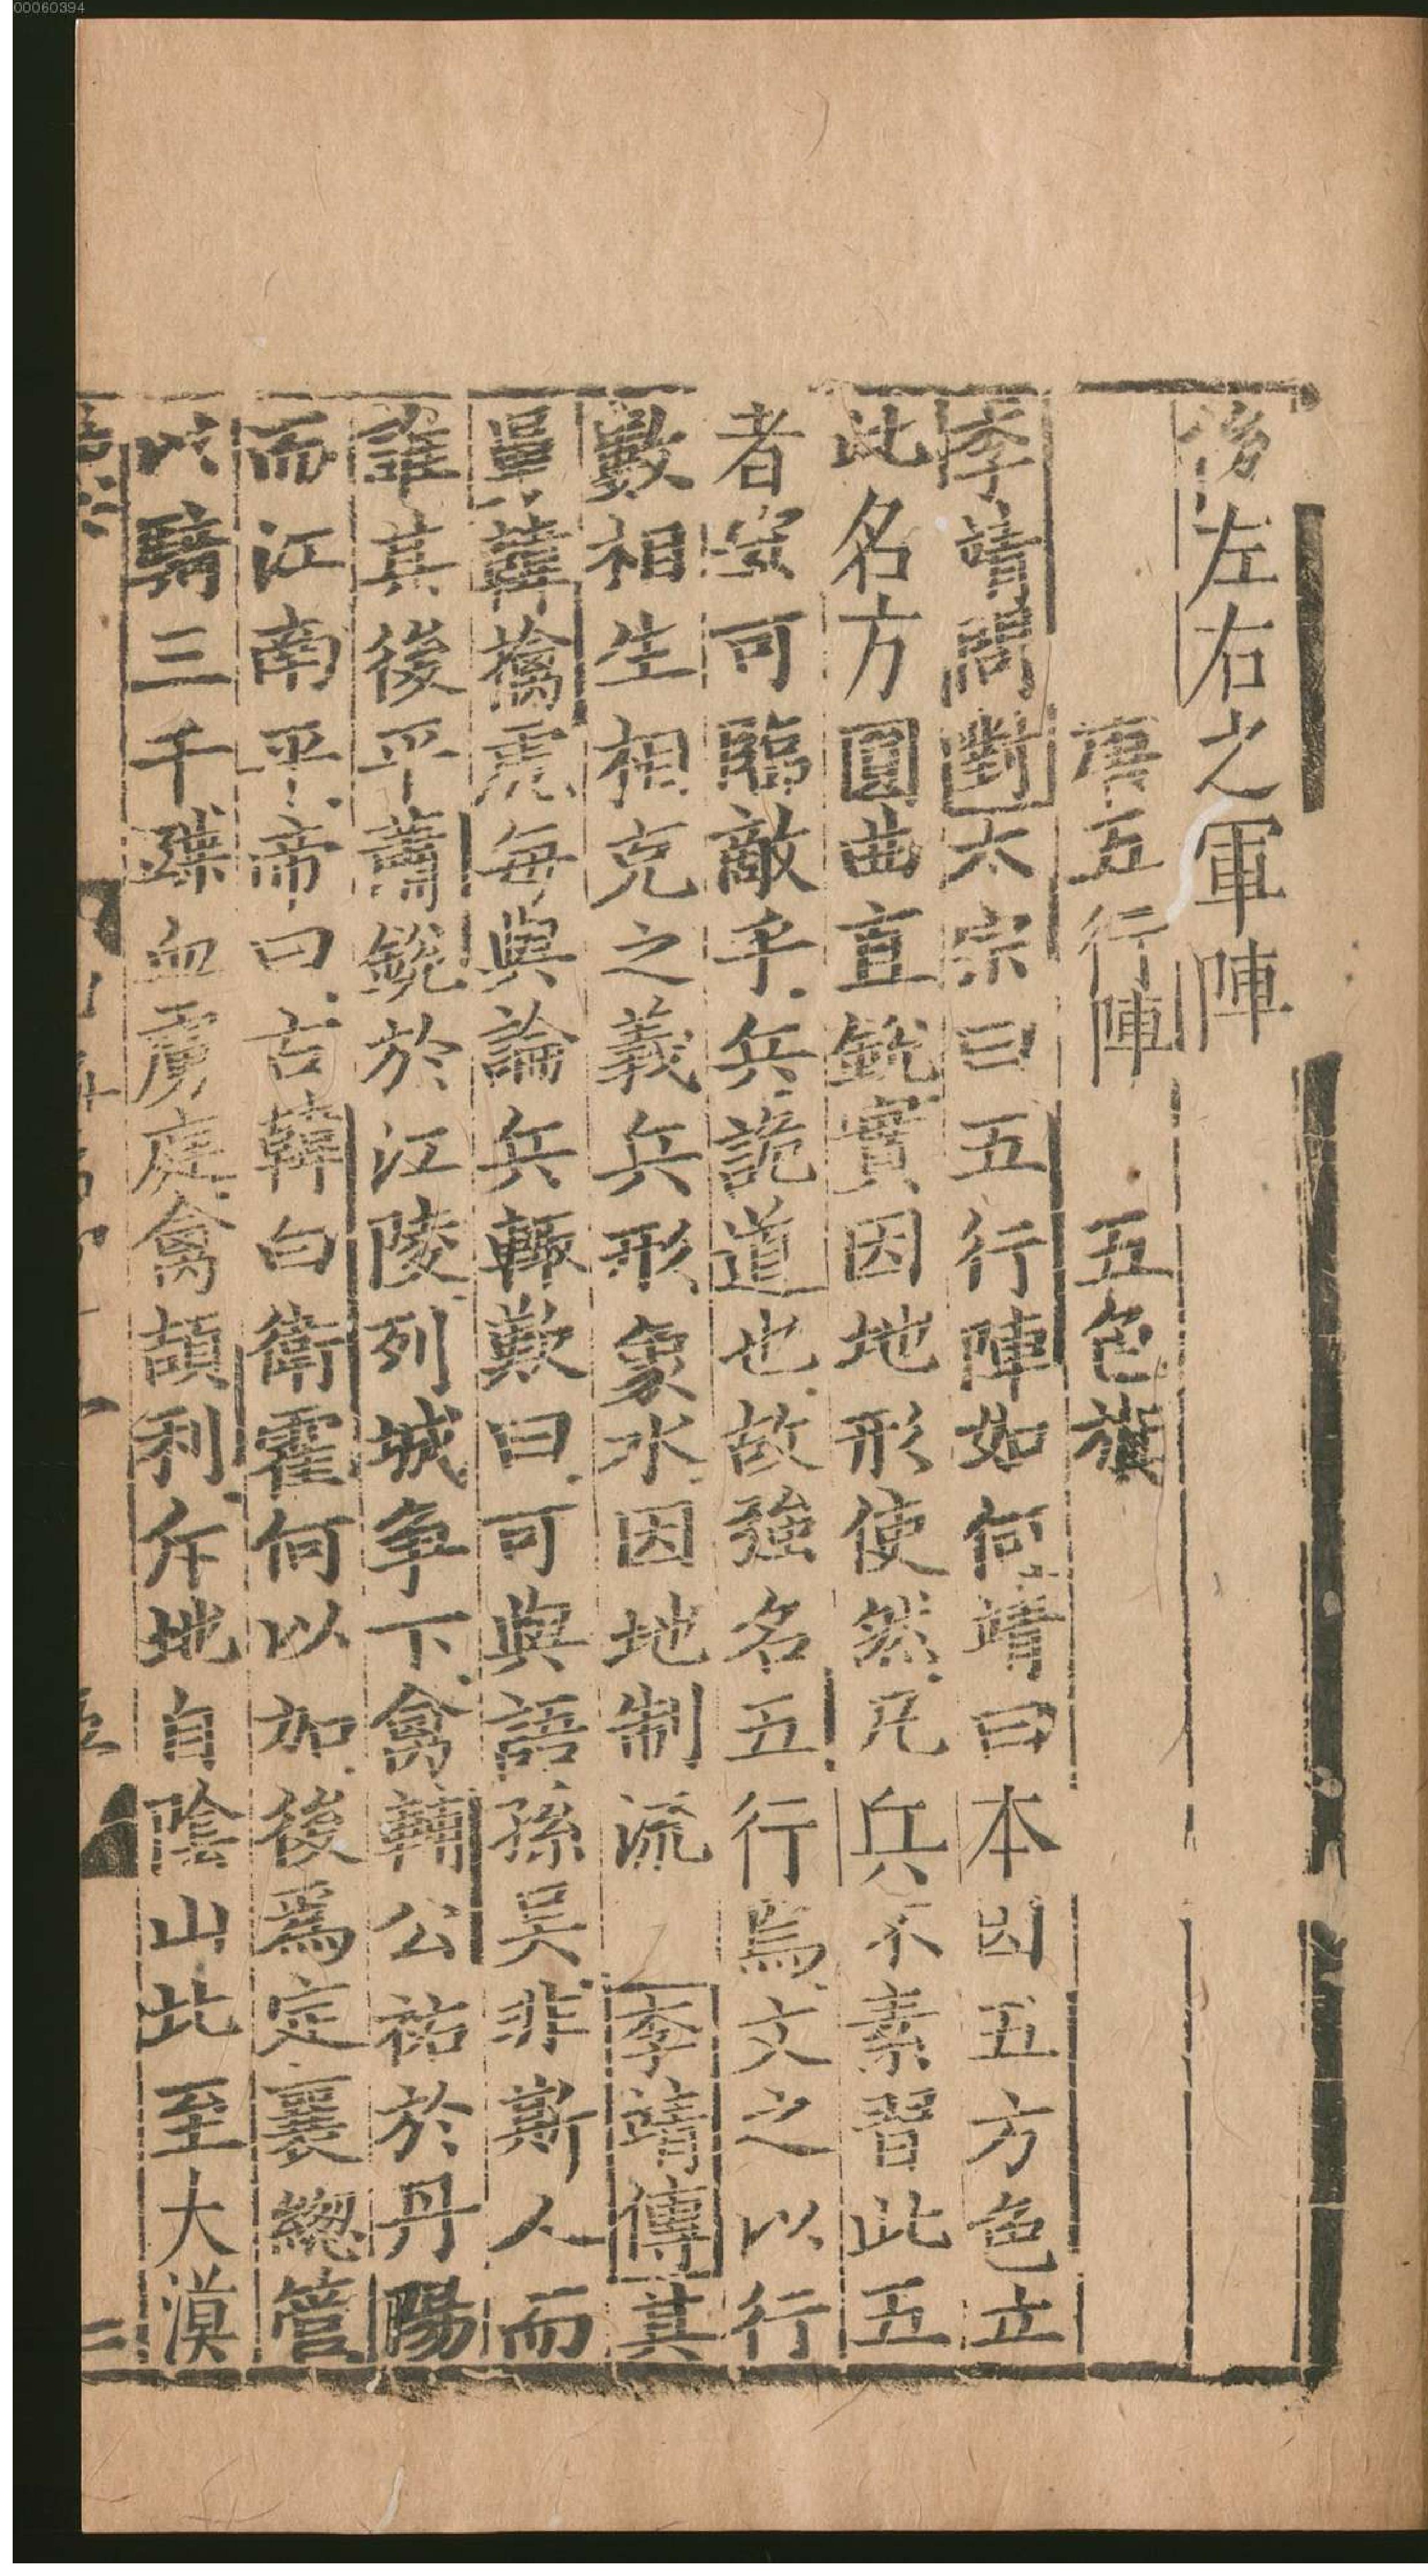 00060394
後左右之軍陣
唐五行陣 五色旗
李靖問對太宗曰五行陣如何靖曰本因五方色立
此名方圓曲直銳實因地形使然凡兵不素習此五
者安可臨敵乎兵詭道也故強名五行焉文之以行
數相生相克之義兵形象水因地制流 李靖傳其
單韓擒虎每與論兵輙歎曰可與語孫吳非斯人而
誰其後平蕭銑於江陵列城爭下禽輔公祏於丹陽
而江南平帝曰古韓白衛霍何以加後爲定襄緫管
以騎三千蹀血虜庭禽頡利斥地自陰山北至大漠
五